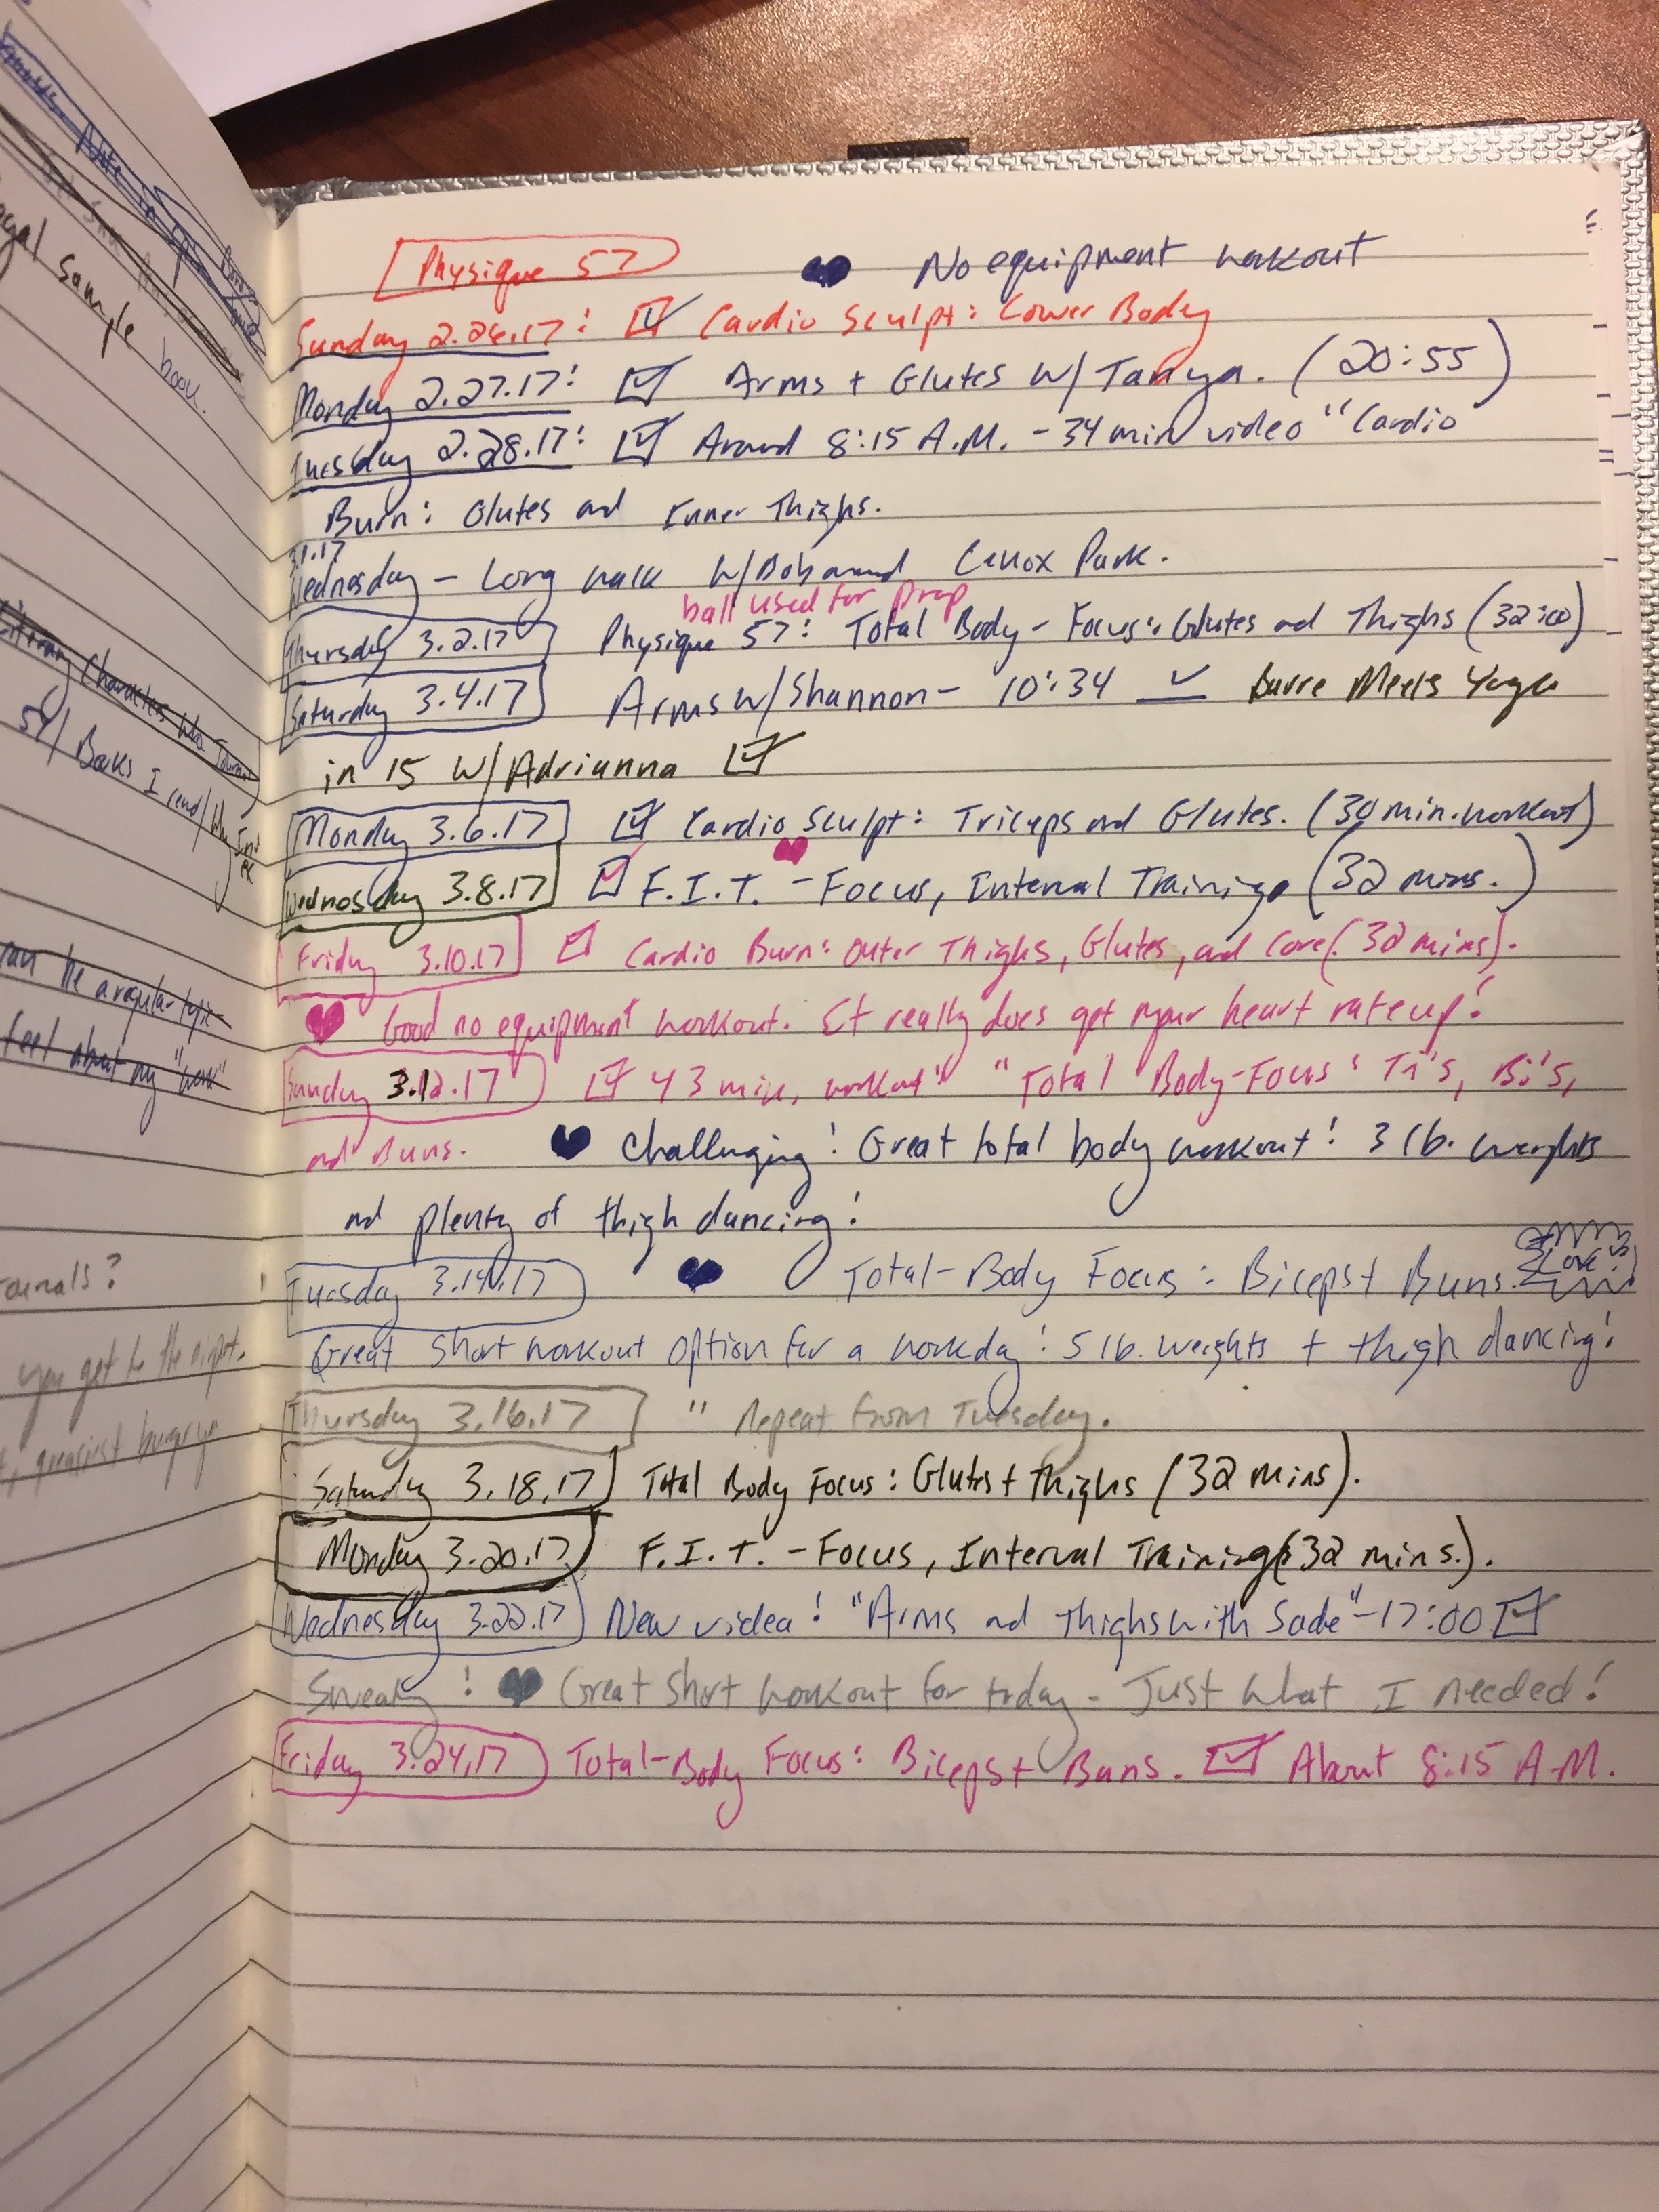 Physique 57 No equipment workout
Sunday 2.26.17: Cardio Sculpt: Lower Body
Monday 2.27.17: Arms + Glutes w/ Tanya. (20:55)
Tuesday 2.28.17: Around 8:15 A.M. - 34 min video "Cardio
Burn: Glutes and Inner Thighs.
3.1.17
Wednesday - Long walk w/ Bob around Lenox Park.
ball used for prop
Thursday 3.2.17 Physique 57: Total Body - Focus: Glutes and Thighs (32:00)
Saturday 3.4.17 Arms w/ Shannon - 10:34 Barre Meets Yoga
in 15 w/ Adrianna
Monday 3.6.17 Cardio Sculpt: Triceps and Glutes. (30 min. workout)
Wednesday 3.8.17 F.I.T. - Focus, Interval Training (32 mins.)
Friday 3.10.17 Cardio Burn: Outer Thighs, Glutes, and Core. (32 mins).
Good no equipment workout. It really does get your heart rate up!
Sunday 3.12.17 43 min. workout "Total Body-Focus: Tri's, Bi's,
and Buns. Challenging! Great total body workout! 3 lb. weights
and plenty of thigh dancing!
Tuesday 3.14.17 Total-Body Focus: Biceps + Buns. Love
Great short workout option for a workday! 5 lb. weights + thigh dancing!
Thursday 3.16.17 " Repeat from Tuesday.
Saturday 3.18.17 Total Body Focus: Glutes + Thighs (32 mins).
Monday 3.20.17 F.I.T. - Focus, Interval Training (32 mins.).
Wednesday 3.22.17 New video! "Arms and Thighs with Sade" - 17:00
Sweaty! Great short workout for today - Just what I needed!
Friday 3.24.17 Total-Body Focus: Biceps + Buns. About 8:15 A.M.
sample book.
Literary Characters Who
54/ Books I read/Why
can be a regular topic
feel about my "work"
you get to the night.
greasiest